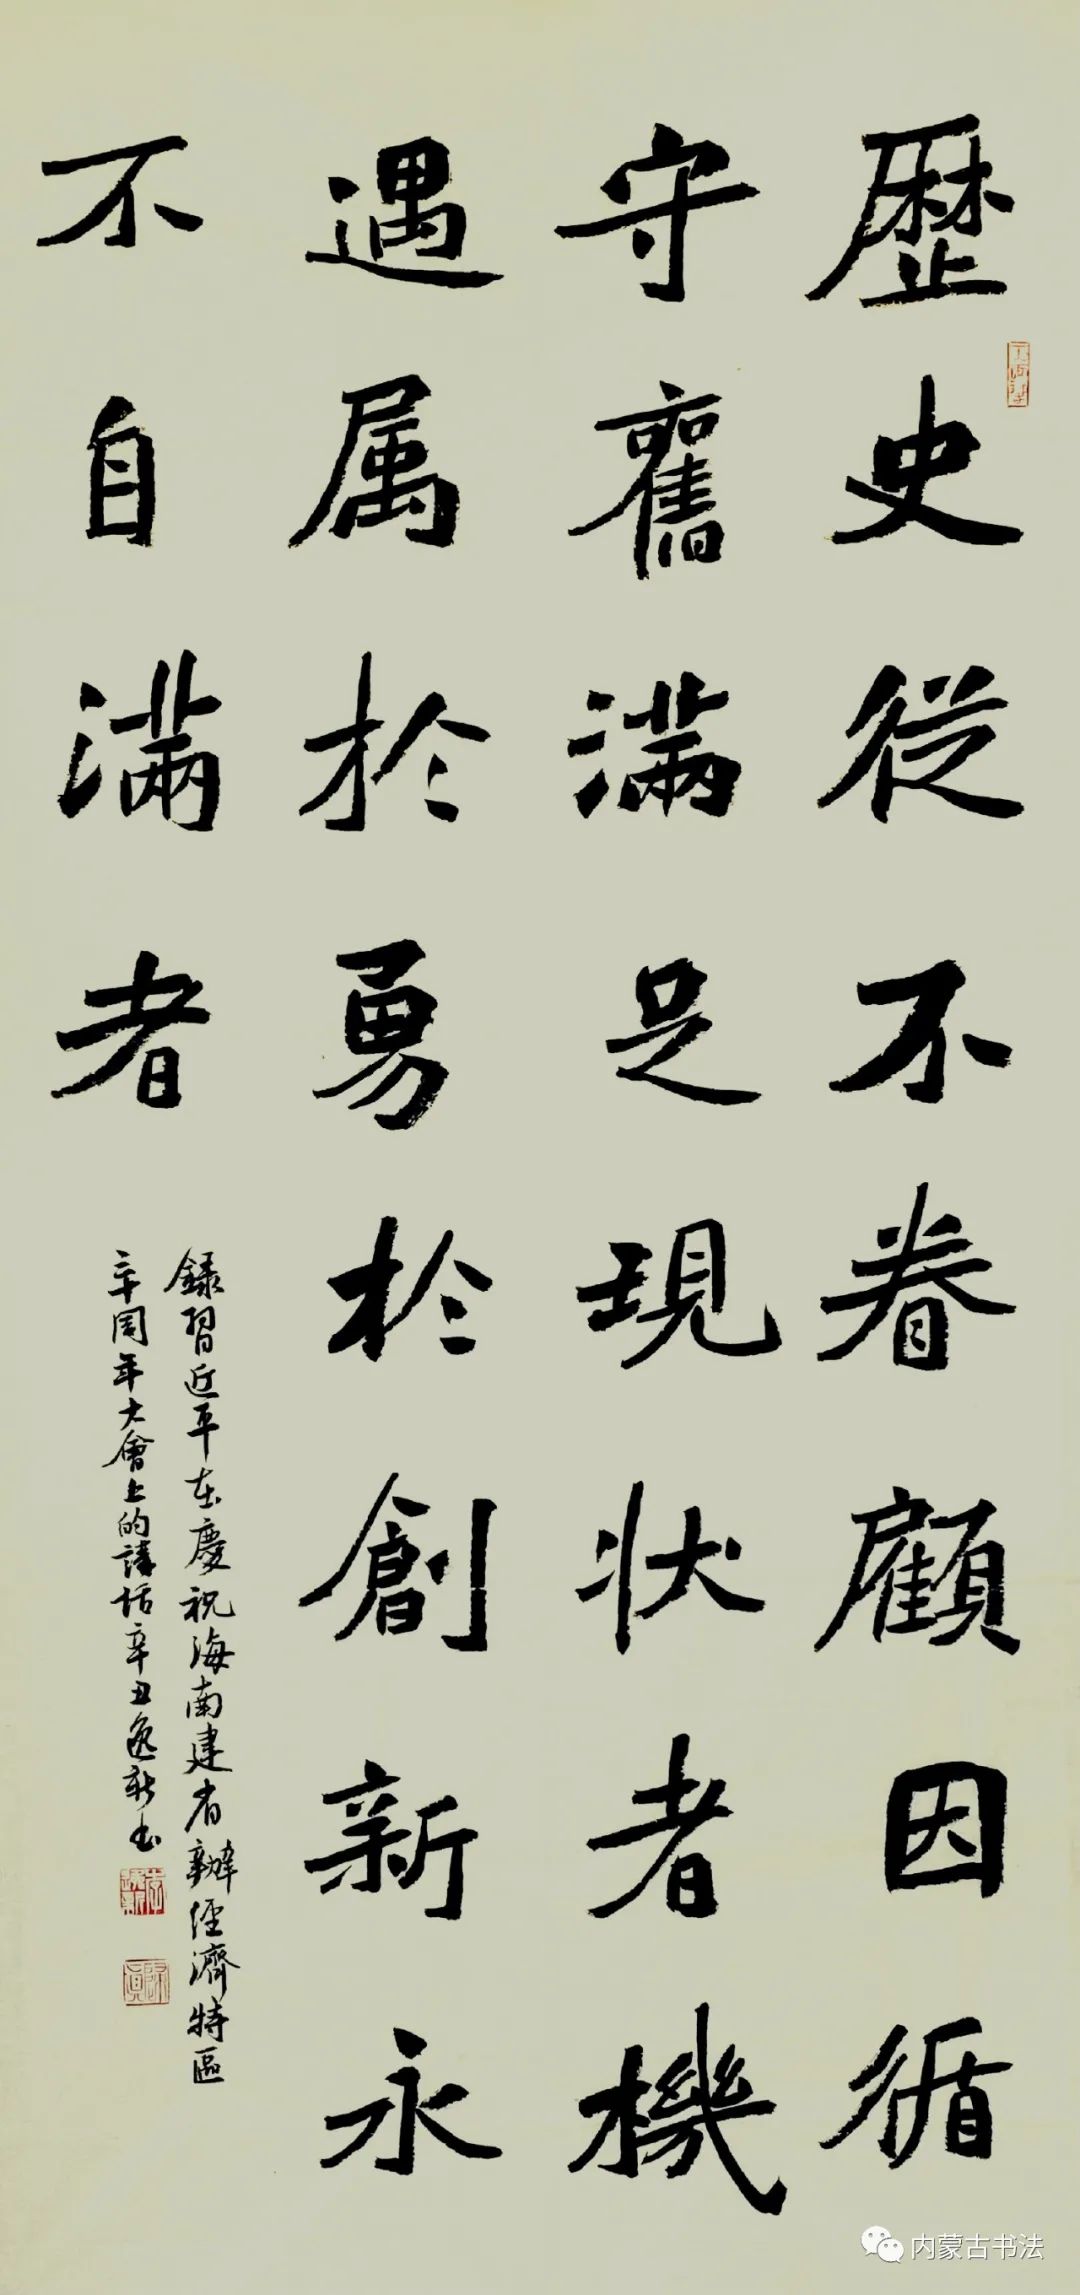 歷史從不眷顧因循
守舊滿足現狀者機
遇属於勇於創新永
不自滿者
錄習近平在慶祝海南建省辦經濟特區
卅周年大會上的講話辛丑逸新书
内蒙古书法